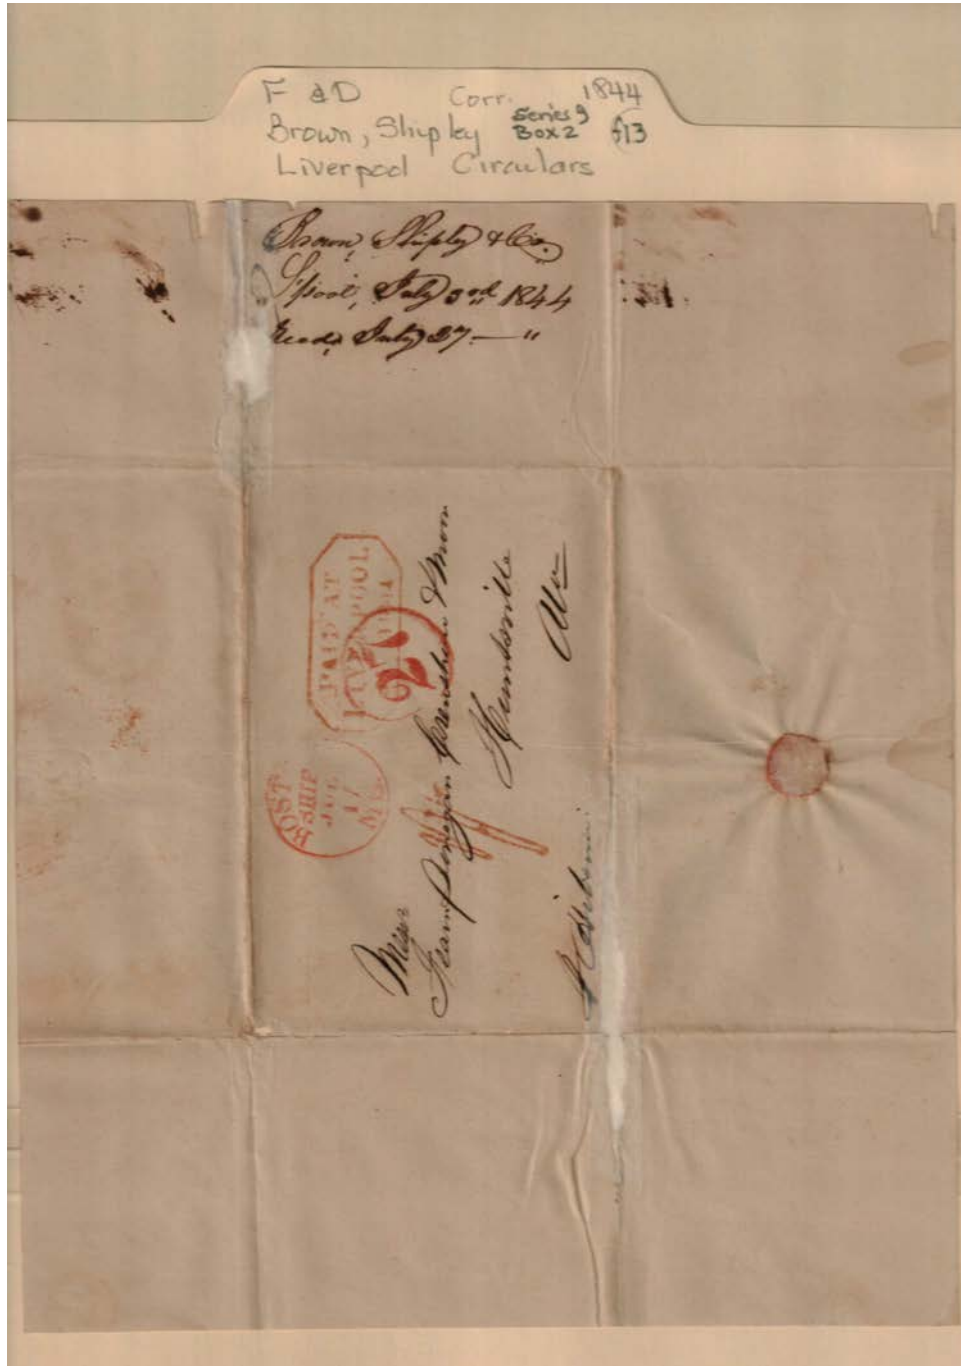 F & D Corr. 1844
Brown, Shipley Series 9 Box 2 f13
Liverpool Circulars
Brown, Shipley & Co
L'pool, July 3rd 1844
Recd. July 27 — "
PAID AT
LIVERPOOL
20
BOST
SHIP
JUL
17
MS
Messr
Fearn Donegan &
Huntsville
Ala